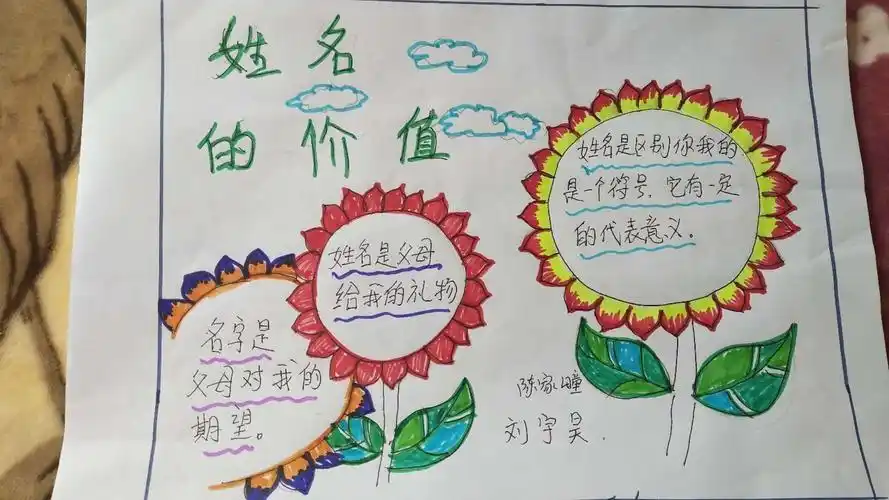 姓名
的价值
姓名是区别你我的
是一个符号，它有一定
的代表意义。
姓名是父母
给我的礼物
名字是
父母对我的
期望。
陈家瞳
刘宇昊.